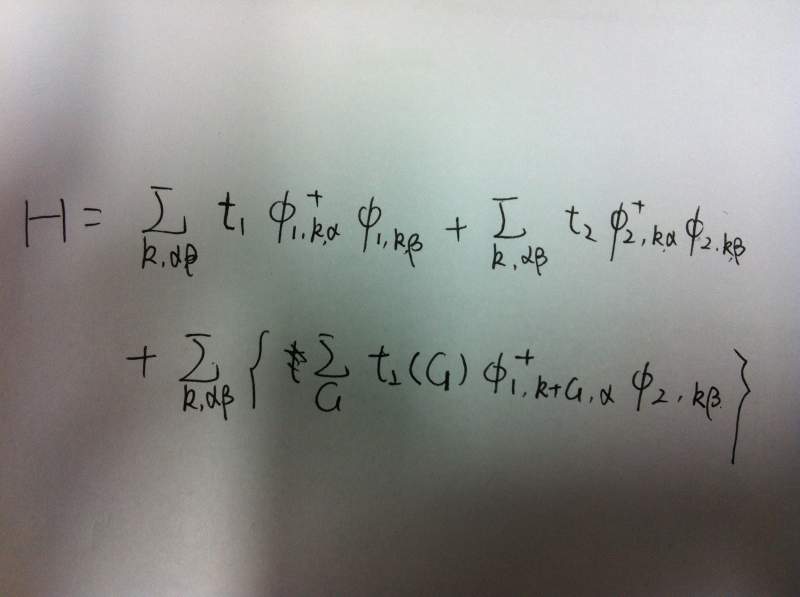 H = Σ_{k,αβ} t₁ φ⁺_{1,k,α} φ_{1,k,β} + Σ_{k,αβ} t₂ φ⁺_{2,k,α} φ_{2,k,β}
+ Σ_{k,αβ} { Σ_G t_⊥(G) φ⁺_{1,k+G,α} φ_{2,kβ} }